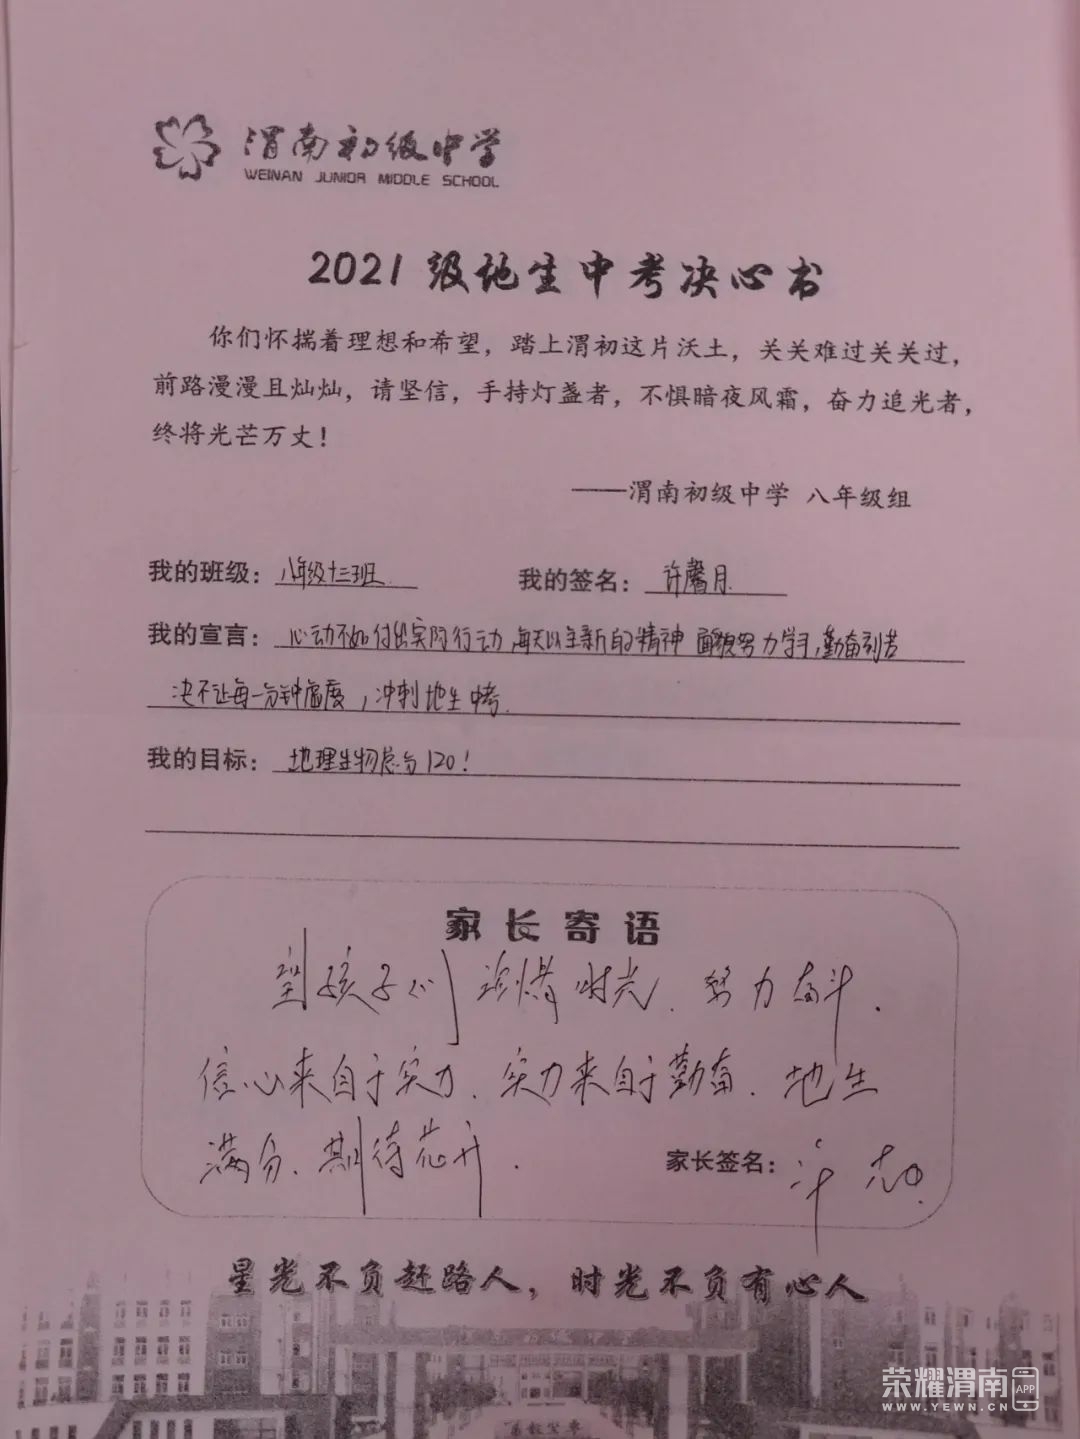 渭南初级中学
WEINAN JUNIOR MIDDLE SCHOOL
2021级地生中考决心书
你们怀揣着理想和希望，踏上渭初这片沃土，关关难过关关过，
前路漫漫且灿灿，请坚信，手持灯盏者，不惧暗夜风霜，奋力追光者，
终将光芒万丈！
——渭南初级中学 八年级组
我的班级：八年级十三班
我的签名：许馨月
我的宣言：心动不如付出实际行动，每天以全新的精神面貌努力学习，勤奋刻苦
决不让每一分钟虚度，冲刺地生中考.
我的目标：地理生物总分120！
家长寄语
望孩子们珍惜时光、努力奋斗.
信心来自于实力、实力来自于勤奋. 地生
满分、期待花开.
家长签名：许
星光不负赶路人，时光不负有心人
荣耀渭南 APP
WWW.YEWN.CN